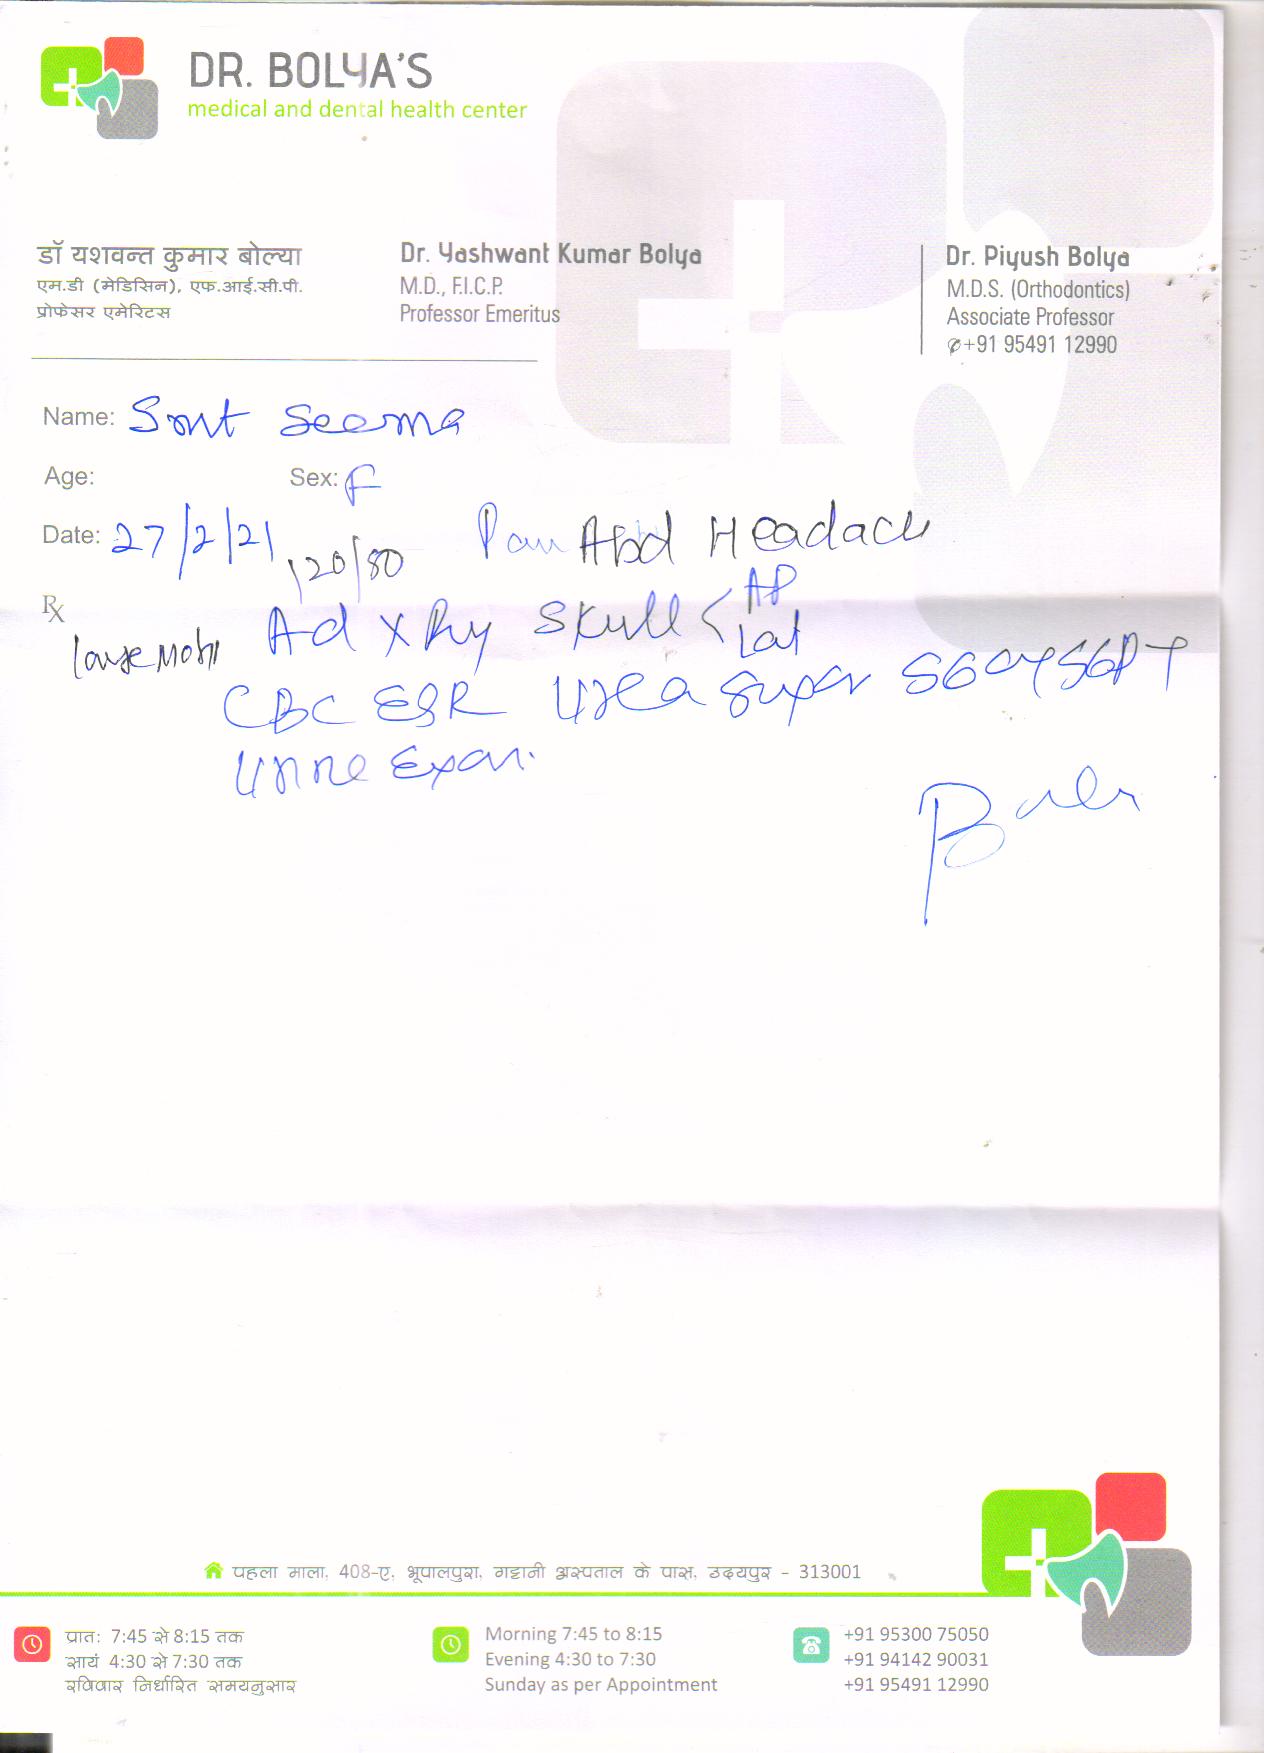 DR. BOLYA'S
medical and dental health center
डॉ यशवन्त कुमार बोल्या
एम.डी (मेडिसिन), एफ.आई.सी.पी.
प्रोफेसर एमेरिटस
Dr. Yashwant Kumar Bolya
M.D., F.I.C.P.
Professor Emeritus
Dr. Piyush Bolya
M.D.S. (Orthodontics)
Associate Professor
+91 95491 12990
Name: Smt Seema
Age: Sex: F
Date: 27/2/21
120/80 Pain Abd Headach
Rx
Ad X Ray Skull < AP
Lat
CBC ESR Urea Suger SGOT SGPT
Urine Exam.
पहला माला, 408-ए, भूपालपुरा, गट्टानी अस्पताल के पास, उदयपुर - 313001
प्रातः 7:45 से 8:15 तक
सायं 4:30 से 7:30 तक
रविवार निर्धारित समयनुसार
Morning 7:45 to 8:15
Evening 4:30 to 7:30
Sunday as per Appointment
+91 95300 75050
+91 94142 90031
+91 95491 12990